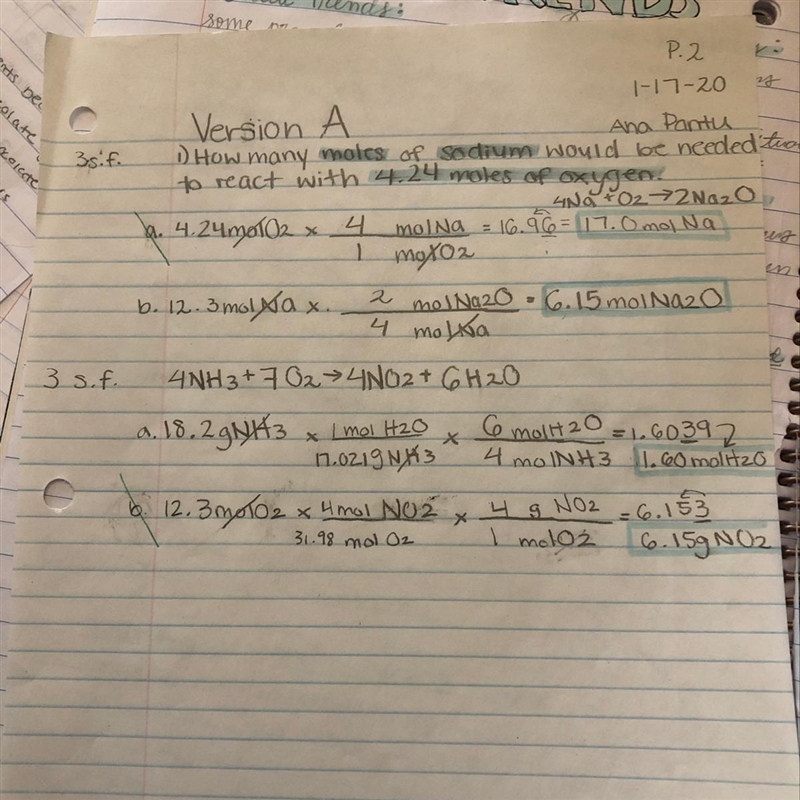 some
P.2
1-17-20
Version A
Ana Pantu
3 s.f. 1) How many moles of sodium would be needed
to react with 4.24 moles of oxygen.
4Na + O2 → 2Na2O
a. 4.24molO2 × 4 molNa / 1 molO2 = 16.96 = 17.0molNa
b. 12.3molNa × 2 molNa2O / 4 molNa = 6.15molNa2O
3 s.f. 4NH3 + 7O2 → 4NO2 + 6H2O
a. 18.2gNH3 × 1mol H2O / 17.021gNH3 × 6 molH2O / 4 molNH3 = 1.6039
1.60molH2O
b. 12.3molO2 × 4mol NO2 / 31.98 mol O2 × 4 g NO2 / 1 molO2 = 6.153
6.15gNO2